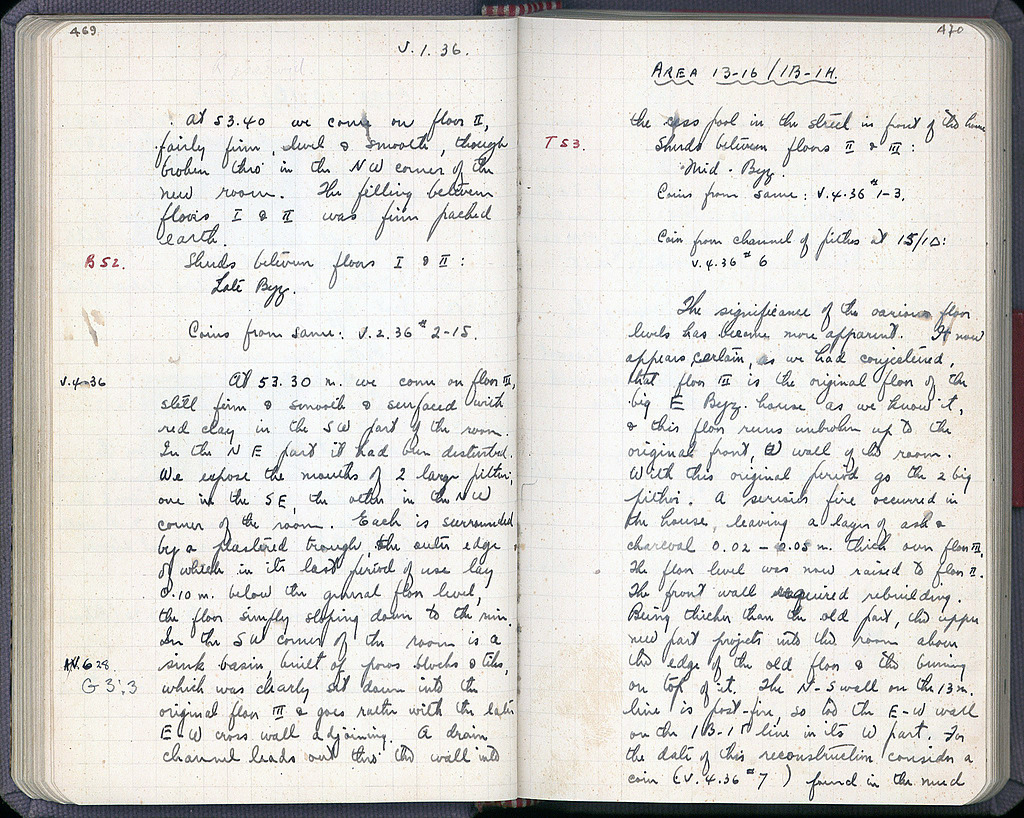 469
V.1.36.
At 53.40 we come on floor II,
fairly firm, level & smooth, though
broken thro' in the NW corner of the
new room. The filling between
floors I & II was firm packed
earth.
B52.
Sherds between floors I & II:
Late Byz.
Coins from same: V.2.36 # 2-15.
V.4.36
At 53.30 m. we come on floor III,
still firm & smooth & surfaced with
red clay in the SW part of the room.
In the NE part it had been disturbed.
We expose the mouths of 2 large pithoi,
one in the SE, the other in the NW
corner of the room. Each is surrounded
by a plastered trough, the outer edge
of which in its last period of use lay
0.10 m. below the general floor level,
the floor simply sloping down to the rim.
In the SW corner of the room is a
AN.628.
sink basin, built of poros blocks & tiles,
G 3:3
which was clearly set down into the
original floor III & goes rather with the later
E-W cross wall adjoining. A drain
channel leads out thro' the wall into
470
AREA 13-16 / ΙΒ-ΙΗ.
the cess pool in the street in front of the house
T53.
Sherds between floors II & III:
Mid. Byz.
Coins from same: V.4.36 # 1-3.
Coin from channel of pithos at 15/ΙΔ:
V.4.36 # 6
The significance of the various floor
levels has become more apparent. It now
appears certain, as we had conjectured,
that floor III is the original floor of the
big E Byz. house as we know it,
& this floor runs unbroken up to the
original front, W wall of the room.
With this original period go the 2 big
pithoi. A serious fire occurred in
the house, leaving a layer of ash &
charcoal 0.02 – 0.05 m. thick over floor III.
The floor level was now raised to floor II.
The front wall required rebuilding.
Being thicker than the old part, the upper
new part projects into the room above
the edge of the old floor & the burning
on top of it. The N-S wall on the 13 m.
line is post-fire, so too the E-W wall
on the ΙΒ-ΙΓ line in its W part. For
the date of this reconstruction consider a
coin (V.4.36 # 7) found in the mud